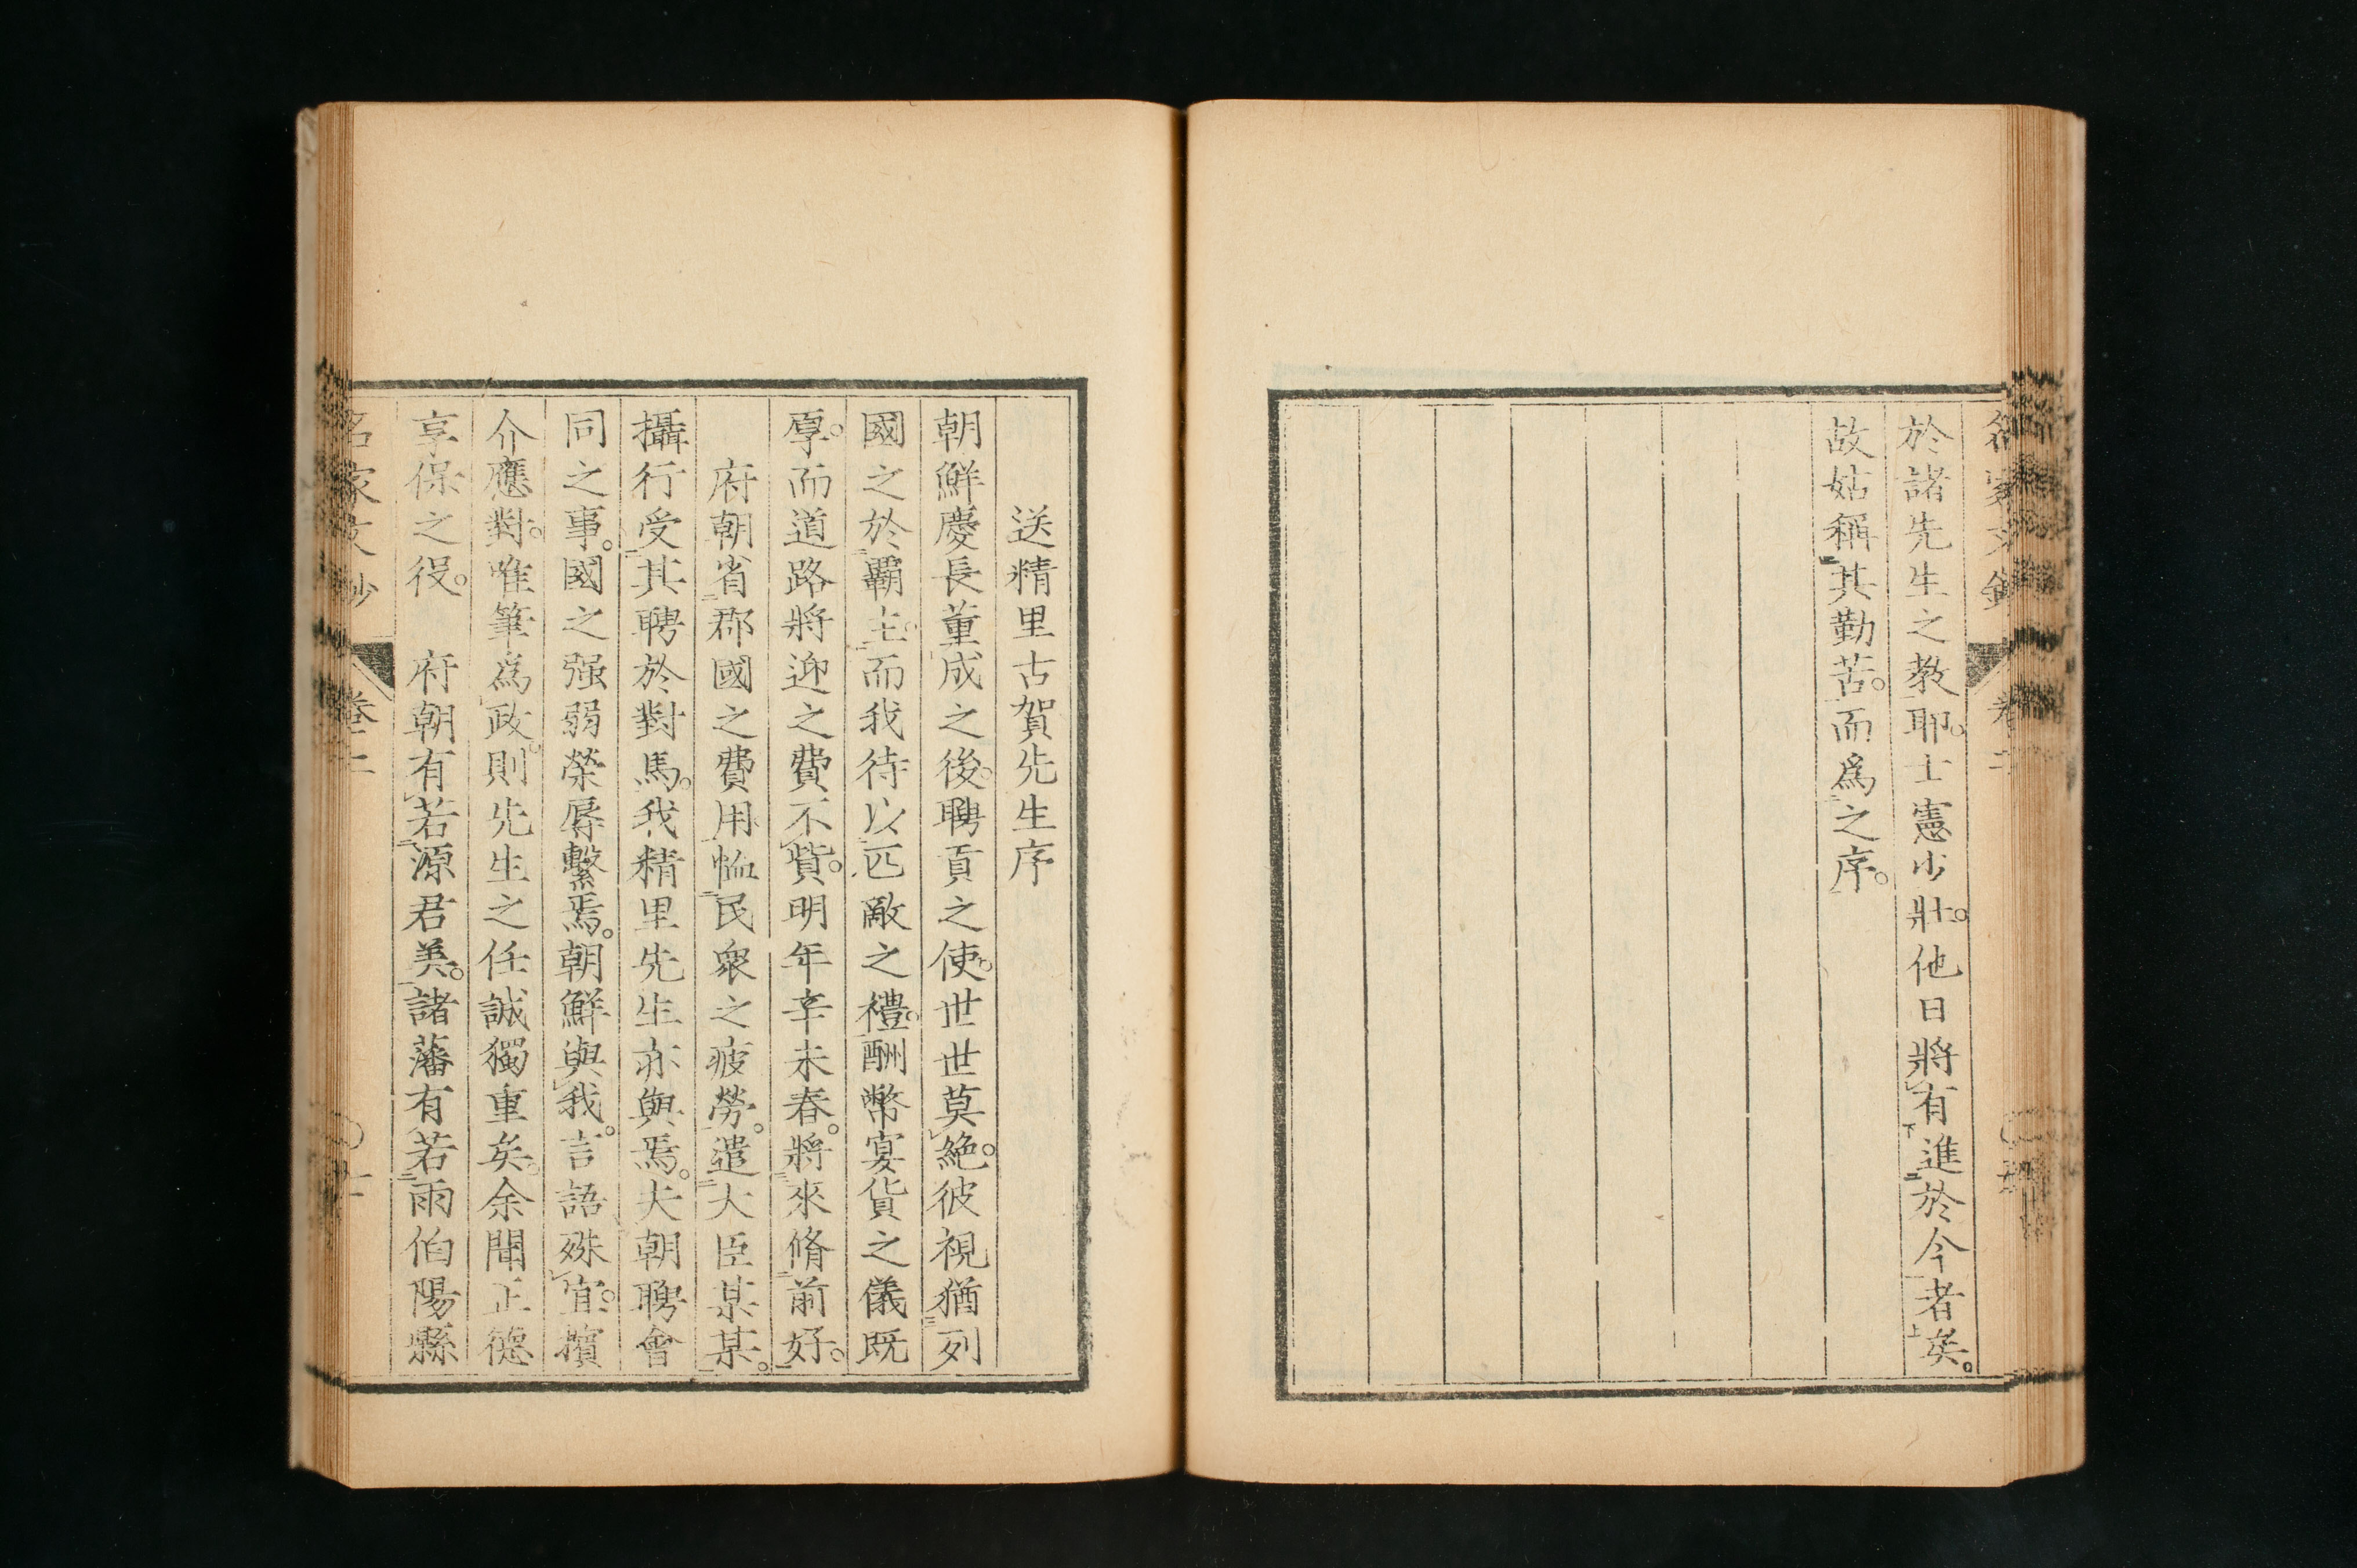 於諸先生之教耶。士憲少壯。他日將有進於今者矣。
故姑稱其勤苦。而爲之序。
送精里古賀先生序
朝鮮慶長董成之後。聘貢之使。世世莫絶。彼視猶列
國之於霸主。而我待以匹敵之禮。酬幣宴貨之儀既
厚。而道路將迎之費不貲。明年辛未春。將來脩前好。
府朝省郡國之費用。恤民衆之疲勞。遣大臣某某。
攝行受其聘於對馬。我精里先生亦與焉。夫朝聘會
同之事。國之强弱榮辱繫焉。朝鮮與我。言語殊宜。擯
介應對。唯筆爲政。則先生之任誠獨重矣。余聞正德
享保之役。 府朝有若源君美。諸藩有若雨伯陽縣
名家文抄 卷二